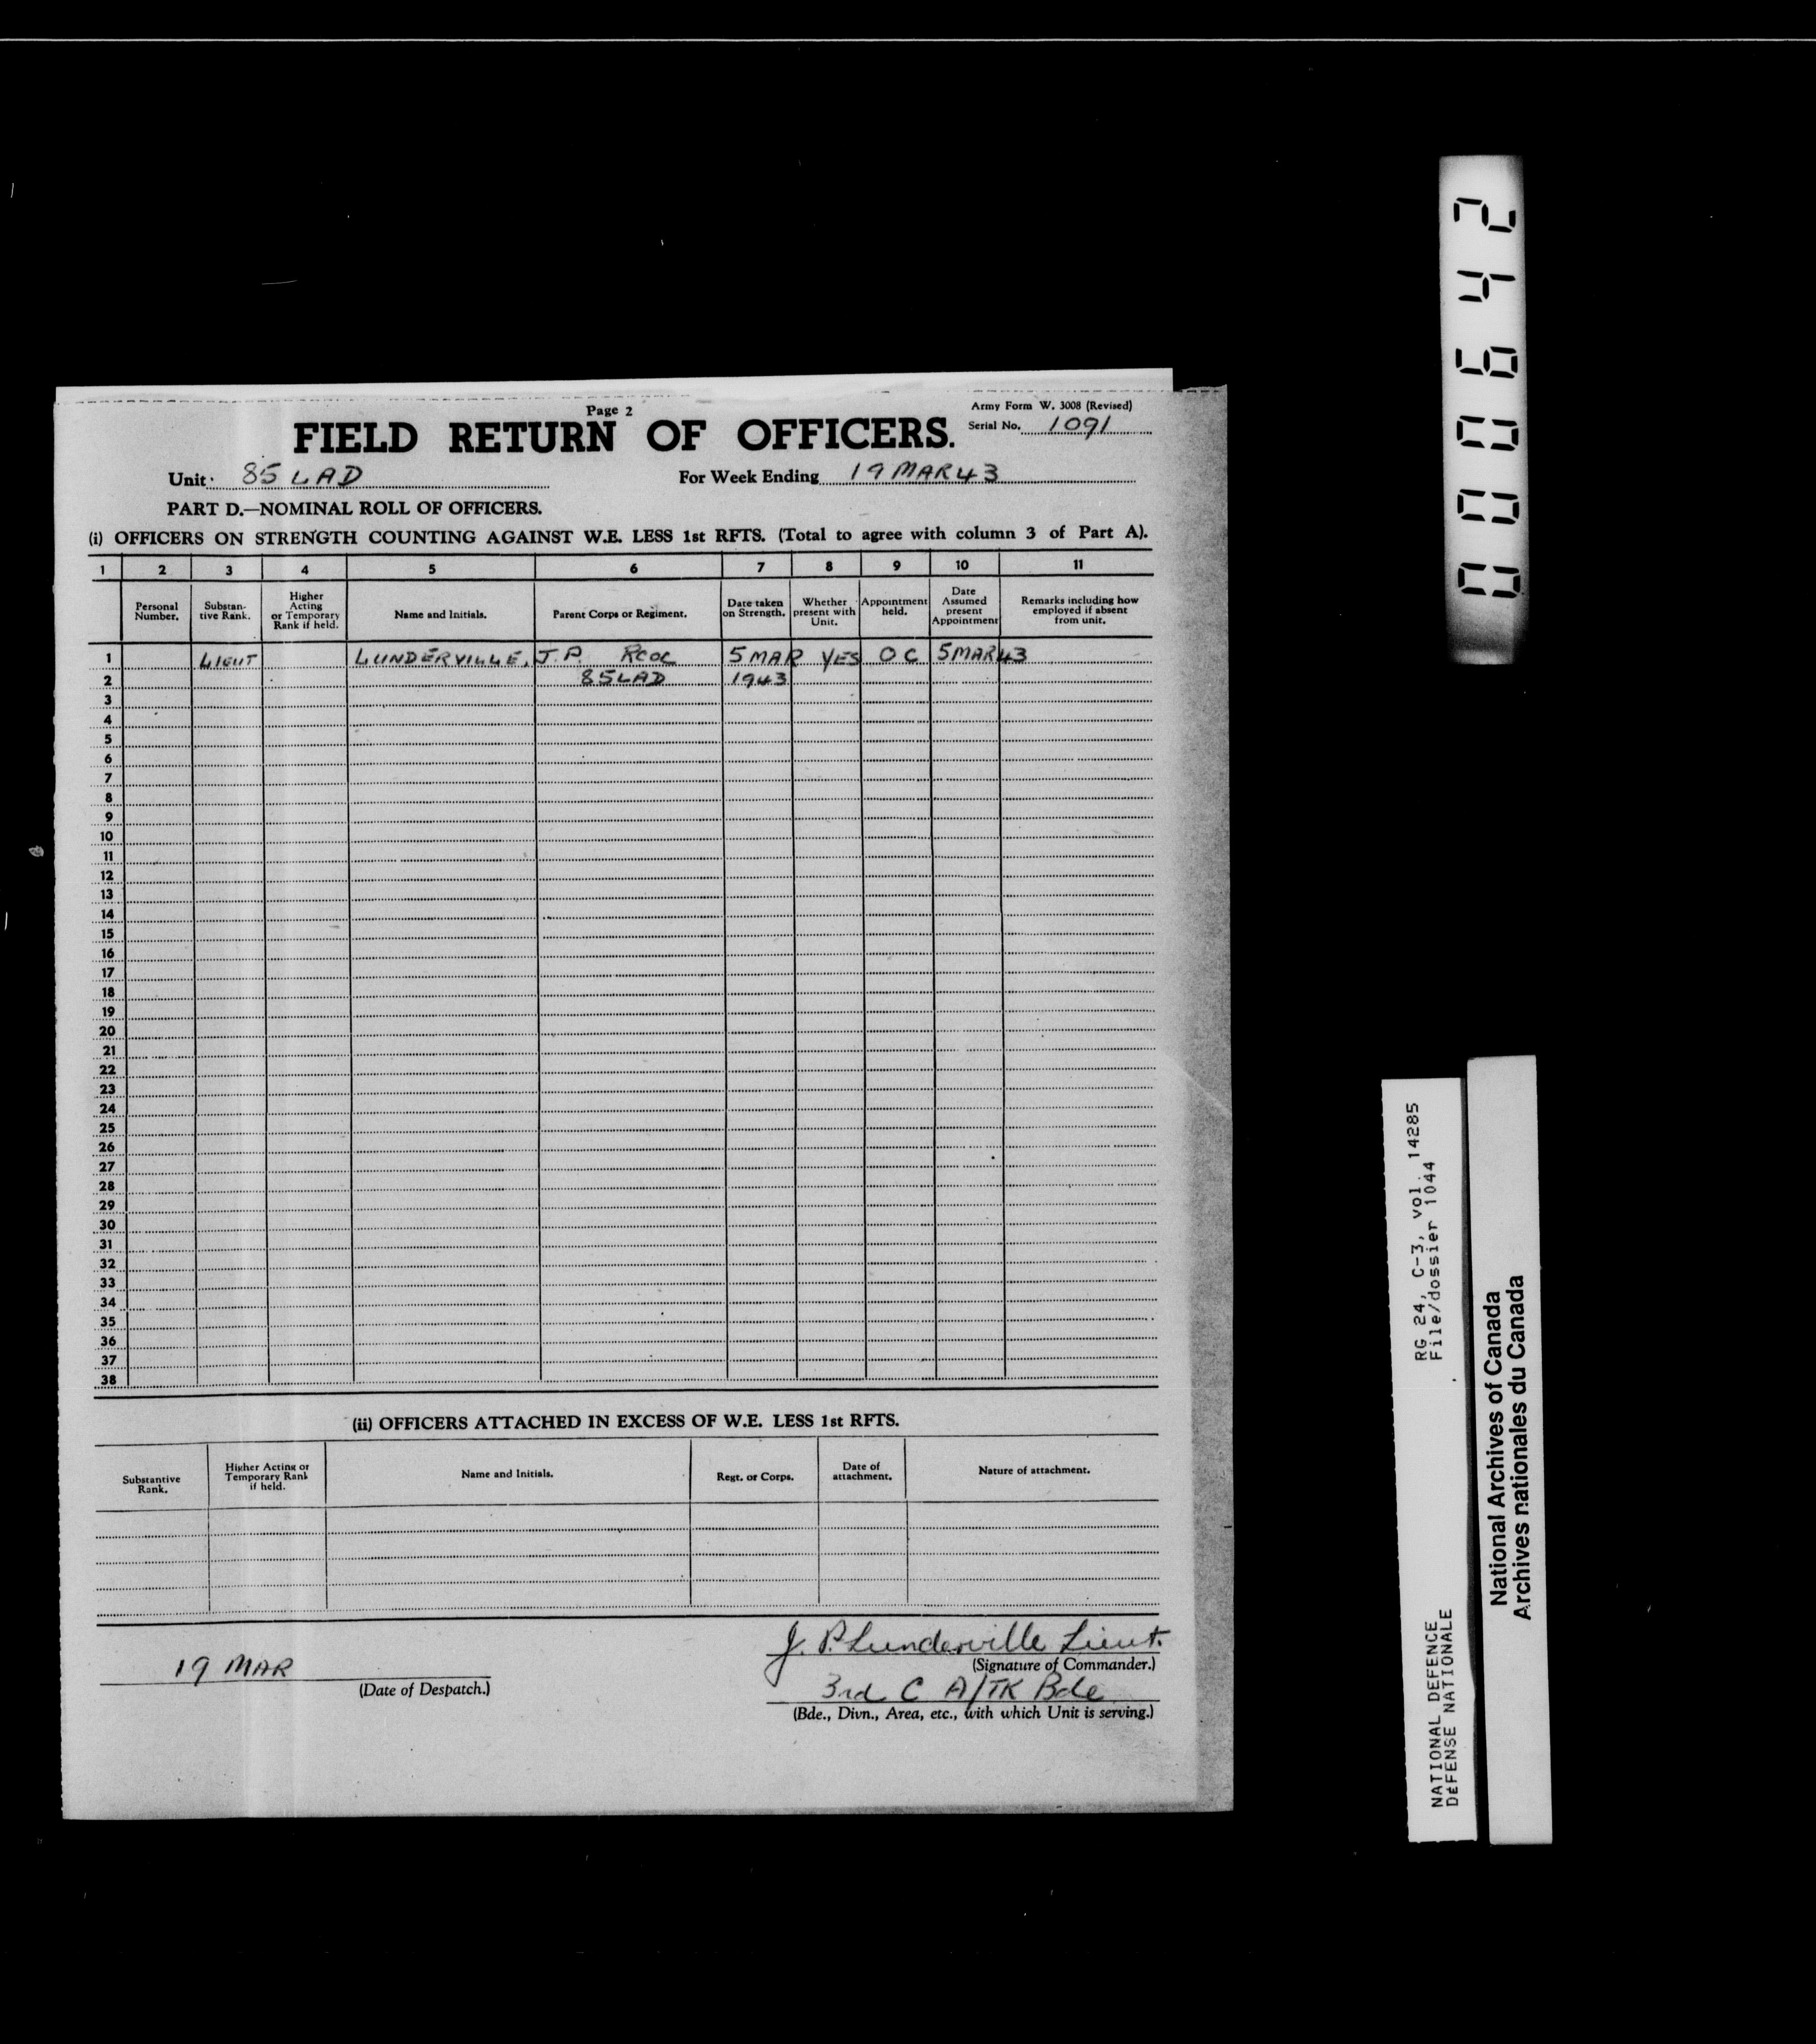 Page 2
Army Form W. 3008 (Revised)
FIELD RETURN OF OFFICERS.
Serial No. 1091
Unit 85 LAD
For Week Ending 19 MAR 43
PART D.—NOMINAL ROLL OF OFFICERS.
(i) OFFICERS ON STRENGTH COUNTING AGAINST W.E. LESS 1st RFTS. (Total to agree with column 3 of Part A).
1 2 3 4 5 6 7 8 9 10 11
Personal Number. Substan-tive Rank. Higher Acting or Temporary Rank if held. Name and Initials. Parent Corps or Regiment. Date taken on Strength. Whether present with Unit. Appointment held. Date Assumed present Appointment Remarks including how employed if absent from unit.
1 LIEUT LUNDERVILLE, J.P. RCOC 5 MAR YES OC 5 MAR 43
2 85 LAD 1943
3
4
5
6
7
8
9
10
11
12
13
14
15
16
17
18
19
20
21
22
23
24
25
26
27
28
29
30
31
32
33
34
35
36
37
38
(ii) OFFICERS ATTACHED IN EXCESS OF W.E. LESS 1st RFTS.
Substantive Rank. Higher Acting or Temporary Rank if held. Name and Initials. Regt. or Corps. Date of attachment. Nature of attachment.
J. P. Lunderville Lieut.
19 MAR
(Signature of Commander.)
(Date of Despatch.)
3rd C A/TK Bde
(Bde., Divn., Area, etc., with which Unit is serving.)
000642
RG 24, C-3, vol. 14285
File/dossier 1044
NATIONAL DEFENCE
DÉFENSE NATIONALE
National Archives of Canada
Archives nationales du Canada